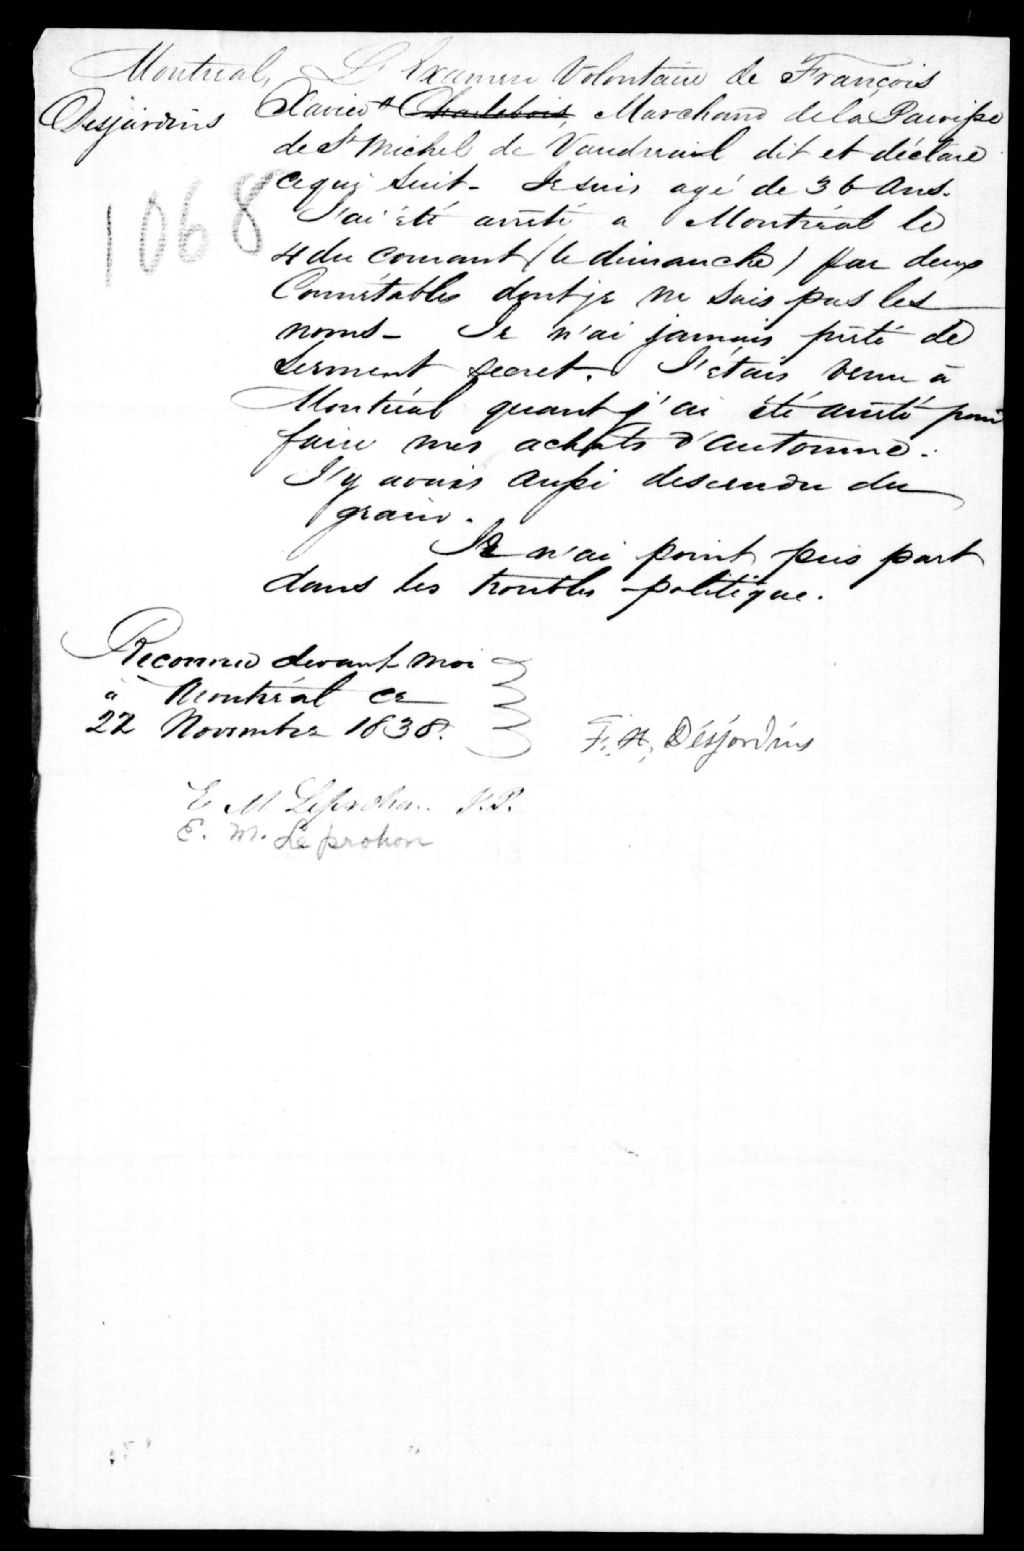 Montreal, L'Examen Volontaire de François
Desjardins Xavier ^ Charlebois, Marchand de la Paroisse
de St Michel de Vaudreuil dit et déclare
ce qui suit - Je suis agé de 36 Ans.
1068
J'ai été arrêté a Montréal le
4 du courant (le dimanche) par deux
Connétables dont je ne sais pas les
noms - Je n'ai jamais prêté de
Serment secret. J'étais venu à
Montréal quant j'ai été arrêté pour
faire mes achats d'automne.
J'y avais aussi descendu du
grain.
Je n'ai point pris part
dans les troubles politique.
Reconnu devant moi
à Montréal ce
22 Novembre 1838.
F. X. Désjardins
E M Leprohon J.P.
E. M. Leprohon